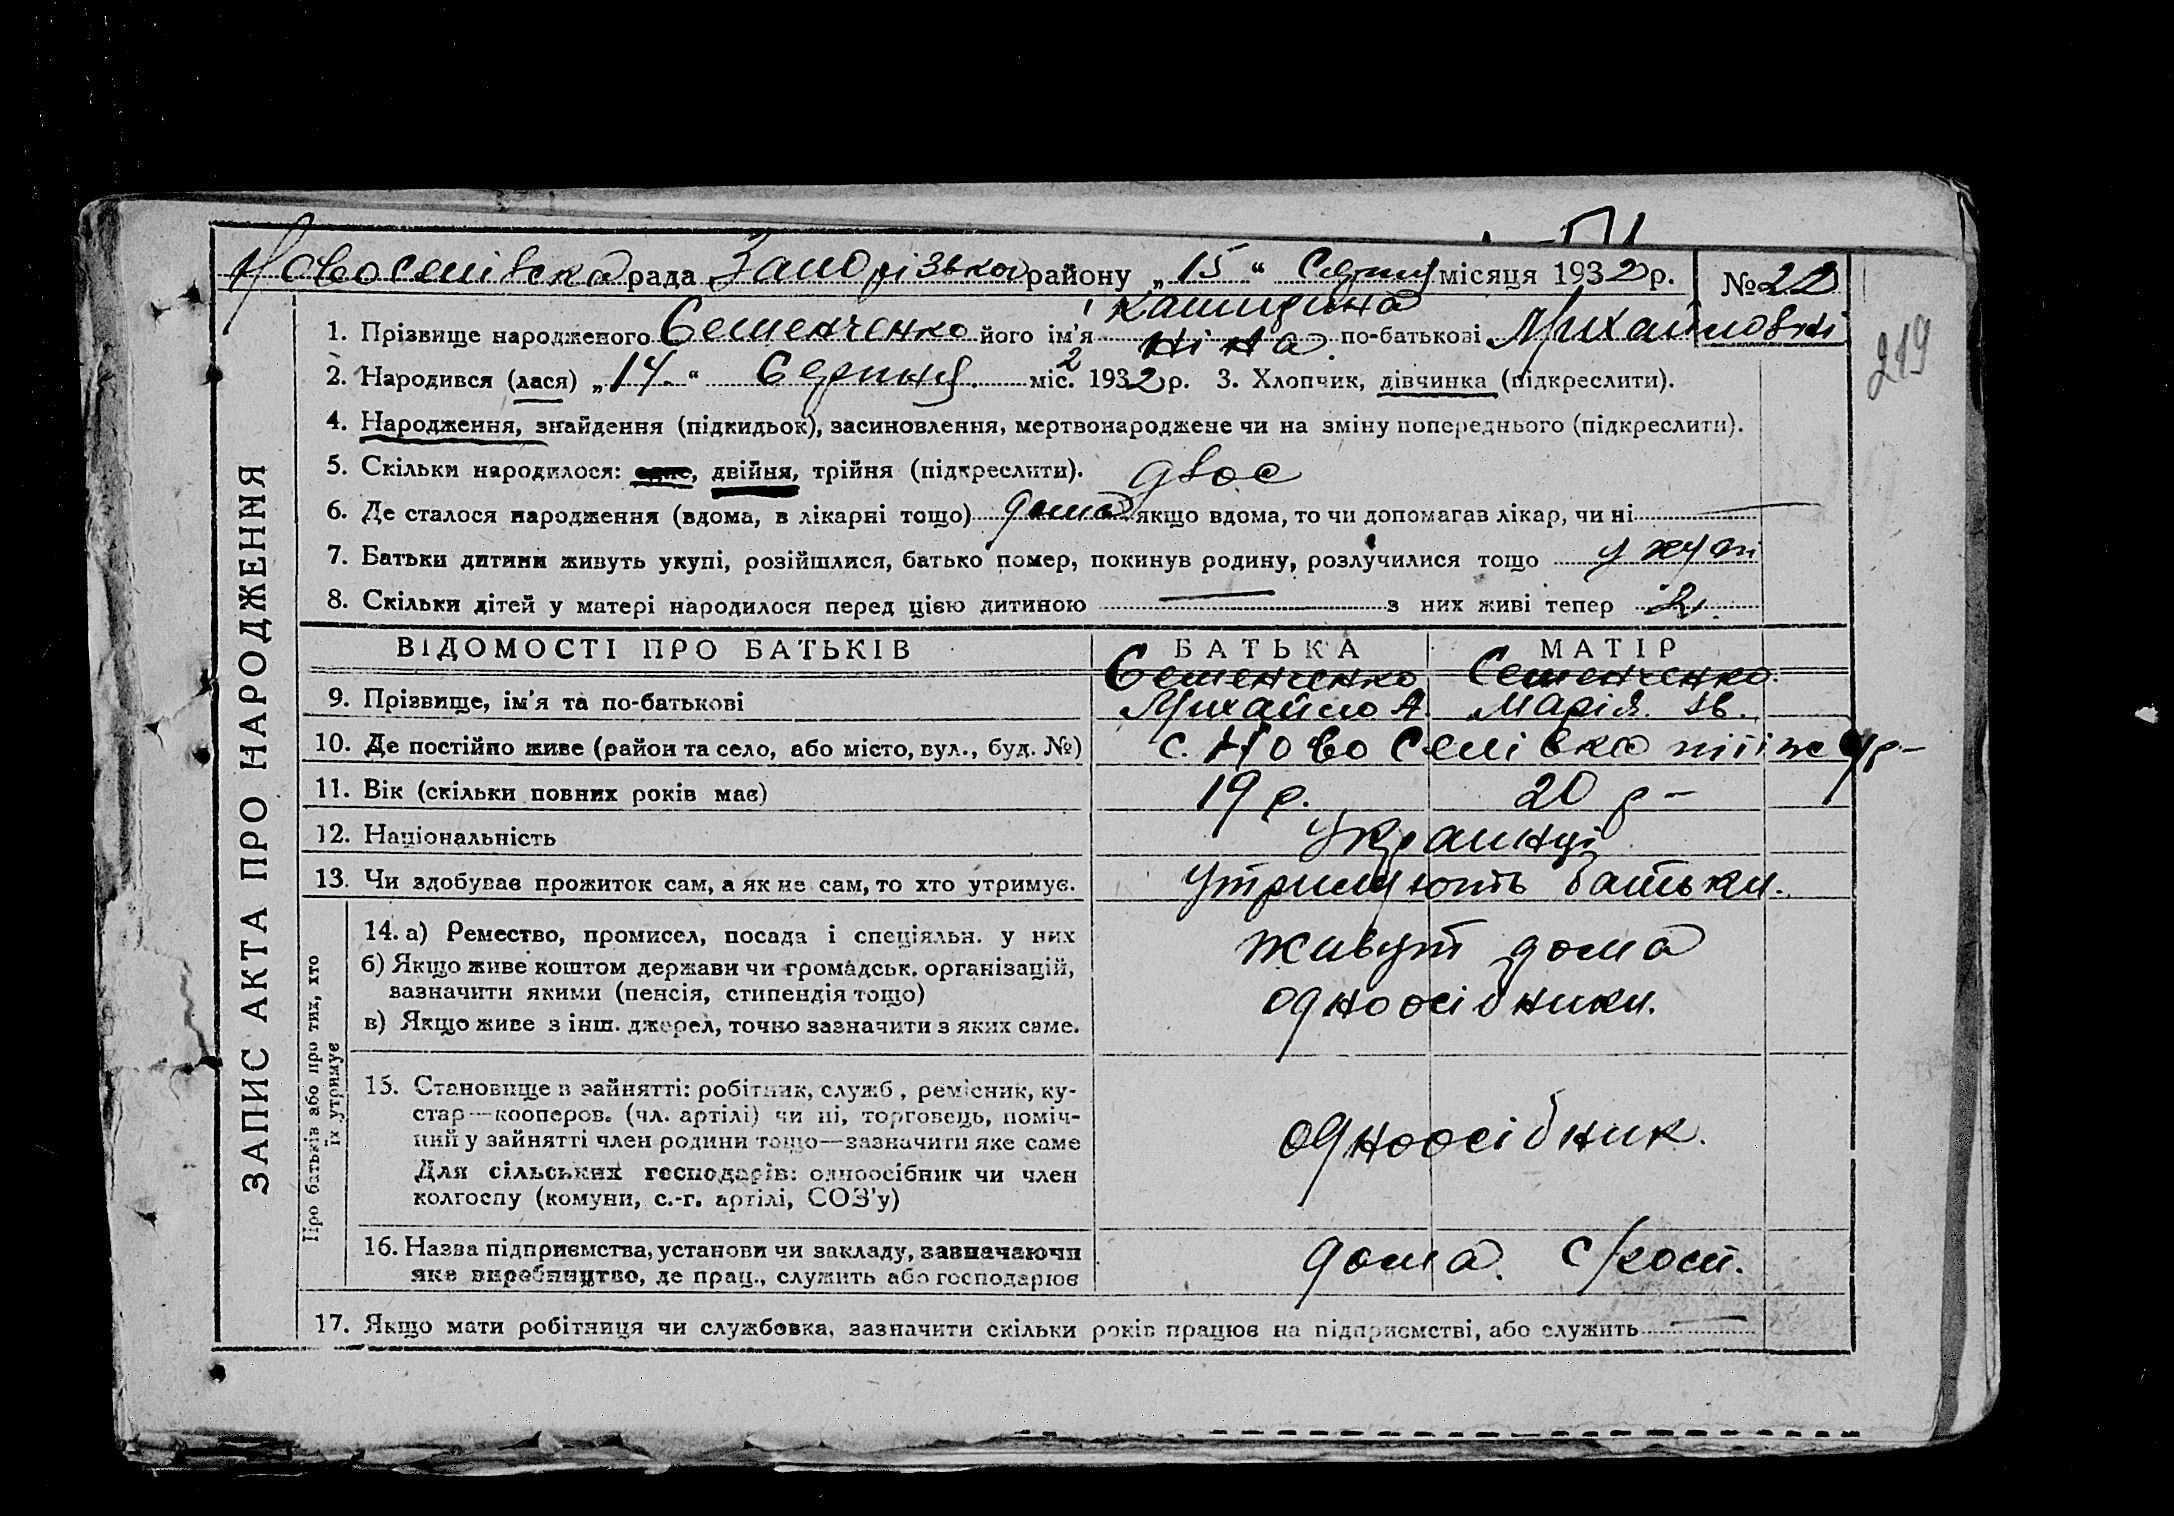 Новоселівска рада Запорізького району „15“ Серпня місяця 1932 р. №22
1. Прізвище народженого Семенченко його ім'я Катирина Ніна. по-батькові Михайловні
219
2. Народився (лася) „14.“ Серпня. міс. 1932 р. 3. Хлопчик, дівчинка (підкреслити).
4. Народження, знайдення (підкидьок), засиновлення, мертвонароджене чи на зміну попереднього (підкреслити).
5. Скільки народилося: одне, двійня, трійня (підкреслити). двоє
6. Де сталося народження (вдома, в лікарні тощо) дома якщо вдома, то чи допомагав лікар, чи ні —
7. Батьки дитини живуть укупі, розійшлися, батько помер, покинув родину, розлучилися тощо
8. Скільки дітей у матері народилося перед цією дитиною — з них живі тепер 2.
ВІДОМОСТІ ПРО БАТЬКІВ БАТЬКА МАТІР
9. Прізвище, ім'я та по-батькові Семенченко Михайло А. Семенченко Марія Ів.
10. Де постійно живе (район та село, або місто, вул., буд. №) с. Ново Селівка
11. Вік (скільки повних років має) 19 р. 20 р –
12. Національність Українці
13. Чи здобував прожиток сам, а як не сам, то хто утримує. Утримують батьки.
ЗАПИС АКТА ПРО НАРОДЖЕННЯ
Про батьків або про тих, хто їх утримує
14. а) Ремество, промисел, посада і спеціяльн. у них
б) Якщо живе коштом держави чи громадськ. організацій,
зазначити якими (пенсія, стипендія тощо)
в) Якщо живе з інш. джерел, точно зазначити з яких саме.
живут дома
одноосібники.
15. Становище в зайнятті: робітник, служб., ремісник, ку-
стар—кооперов. (чл. артілі) чи ні, торговець, поміч-
ний у зайнятті член родини тощо—зазначити яке саме
Для сільських господарів: одноосібник чи член
колгоспу (комуни, с.-г. артілі, СОЗ'у)
одноосібник.
16. Назва підприємства, установи чи закладу, зазначаючи
яке виробництво, де прац., служить або господарює
дома. с/госп.
17. Якщо мати робітниця чи службовка, зазначити скільки років працює на підприємстві, або служить —